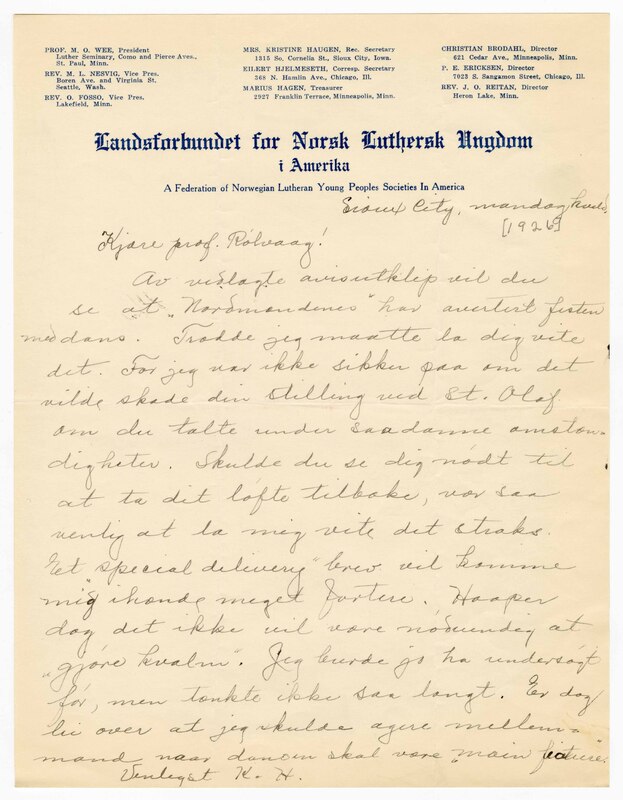 PROF. M. O. WEE, President
Luther Seminary, Como and Pierce Aves.,
St. Paul, Minn.
REV. M. L. NESVIG, Vice Pres.
Boren Ave. and Virginia St.
Seattle, Wash.
REV. O. FOSSO, Vice Pres.
Lakefield, Minn.
MRS. KRISTINE HAUGEN, Rec. Secretary
1315 So. Cornelia St., Sioux City, Iowa.
EILERT HJELMESETH, Corresp. Secretary
368 N. Hamlin Ave., Chicago, Ill.
MARIUS HAGEN, Treasurer
2927 Franklin Terrace, Minneapolis, Minn.
CHRISTIAN BRODAHL, Director
621 Cedar Ave., Minneapolis, Minn.
P. E. ERICKSEN, Director
7023 S. Sangamon Street, Chicago, Ill.
REV. J. O. REITAN, Director
Heron Lake, Minn.
Landsforbundet for Norsk Luthersk Ungdom
i Amerika
A Federation of Norwegian Lutheran Young Peoples Societies In America
Sioux City, mandag kveld,
[1926]
Kjære prof. Rölvaag!
Av vedlagte avisutklip vil du
se at "Nordmændenes" har avertert festen
med dans. Trodde jeg maatte la dig vite
det. For jeg var ikke sikker paa om det
vilde skade din stilling ved St. Olaf
om du talte under saadanne omstæn-
digheter. Skulde du se dig nødt til
at ta dit løfte tilbake, vær saa
venlig at la mig vite det straks.
Et "special delivery" brev vil komme
mig ihænde meget fortere. Haaper
dog det ikke vil være nødvendig at
"gjøre kvalm". Jeg burde jo ha undersøgt
før, men tænkte ikke saa langt. Er dog
lei over at jeg skulde agere mellem-
mand naar dansen skal være "main feature".
Venligst K. H.